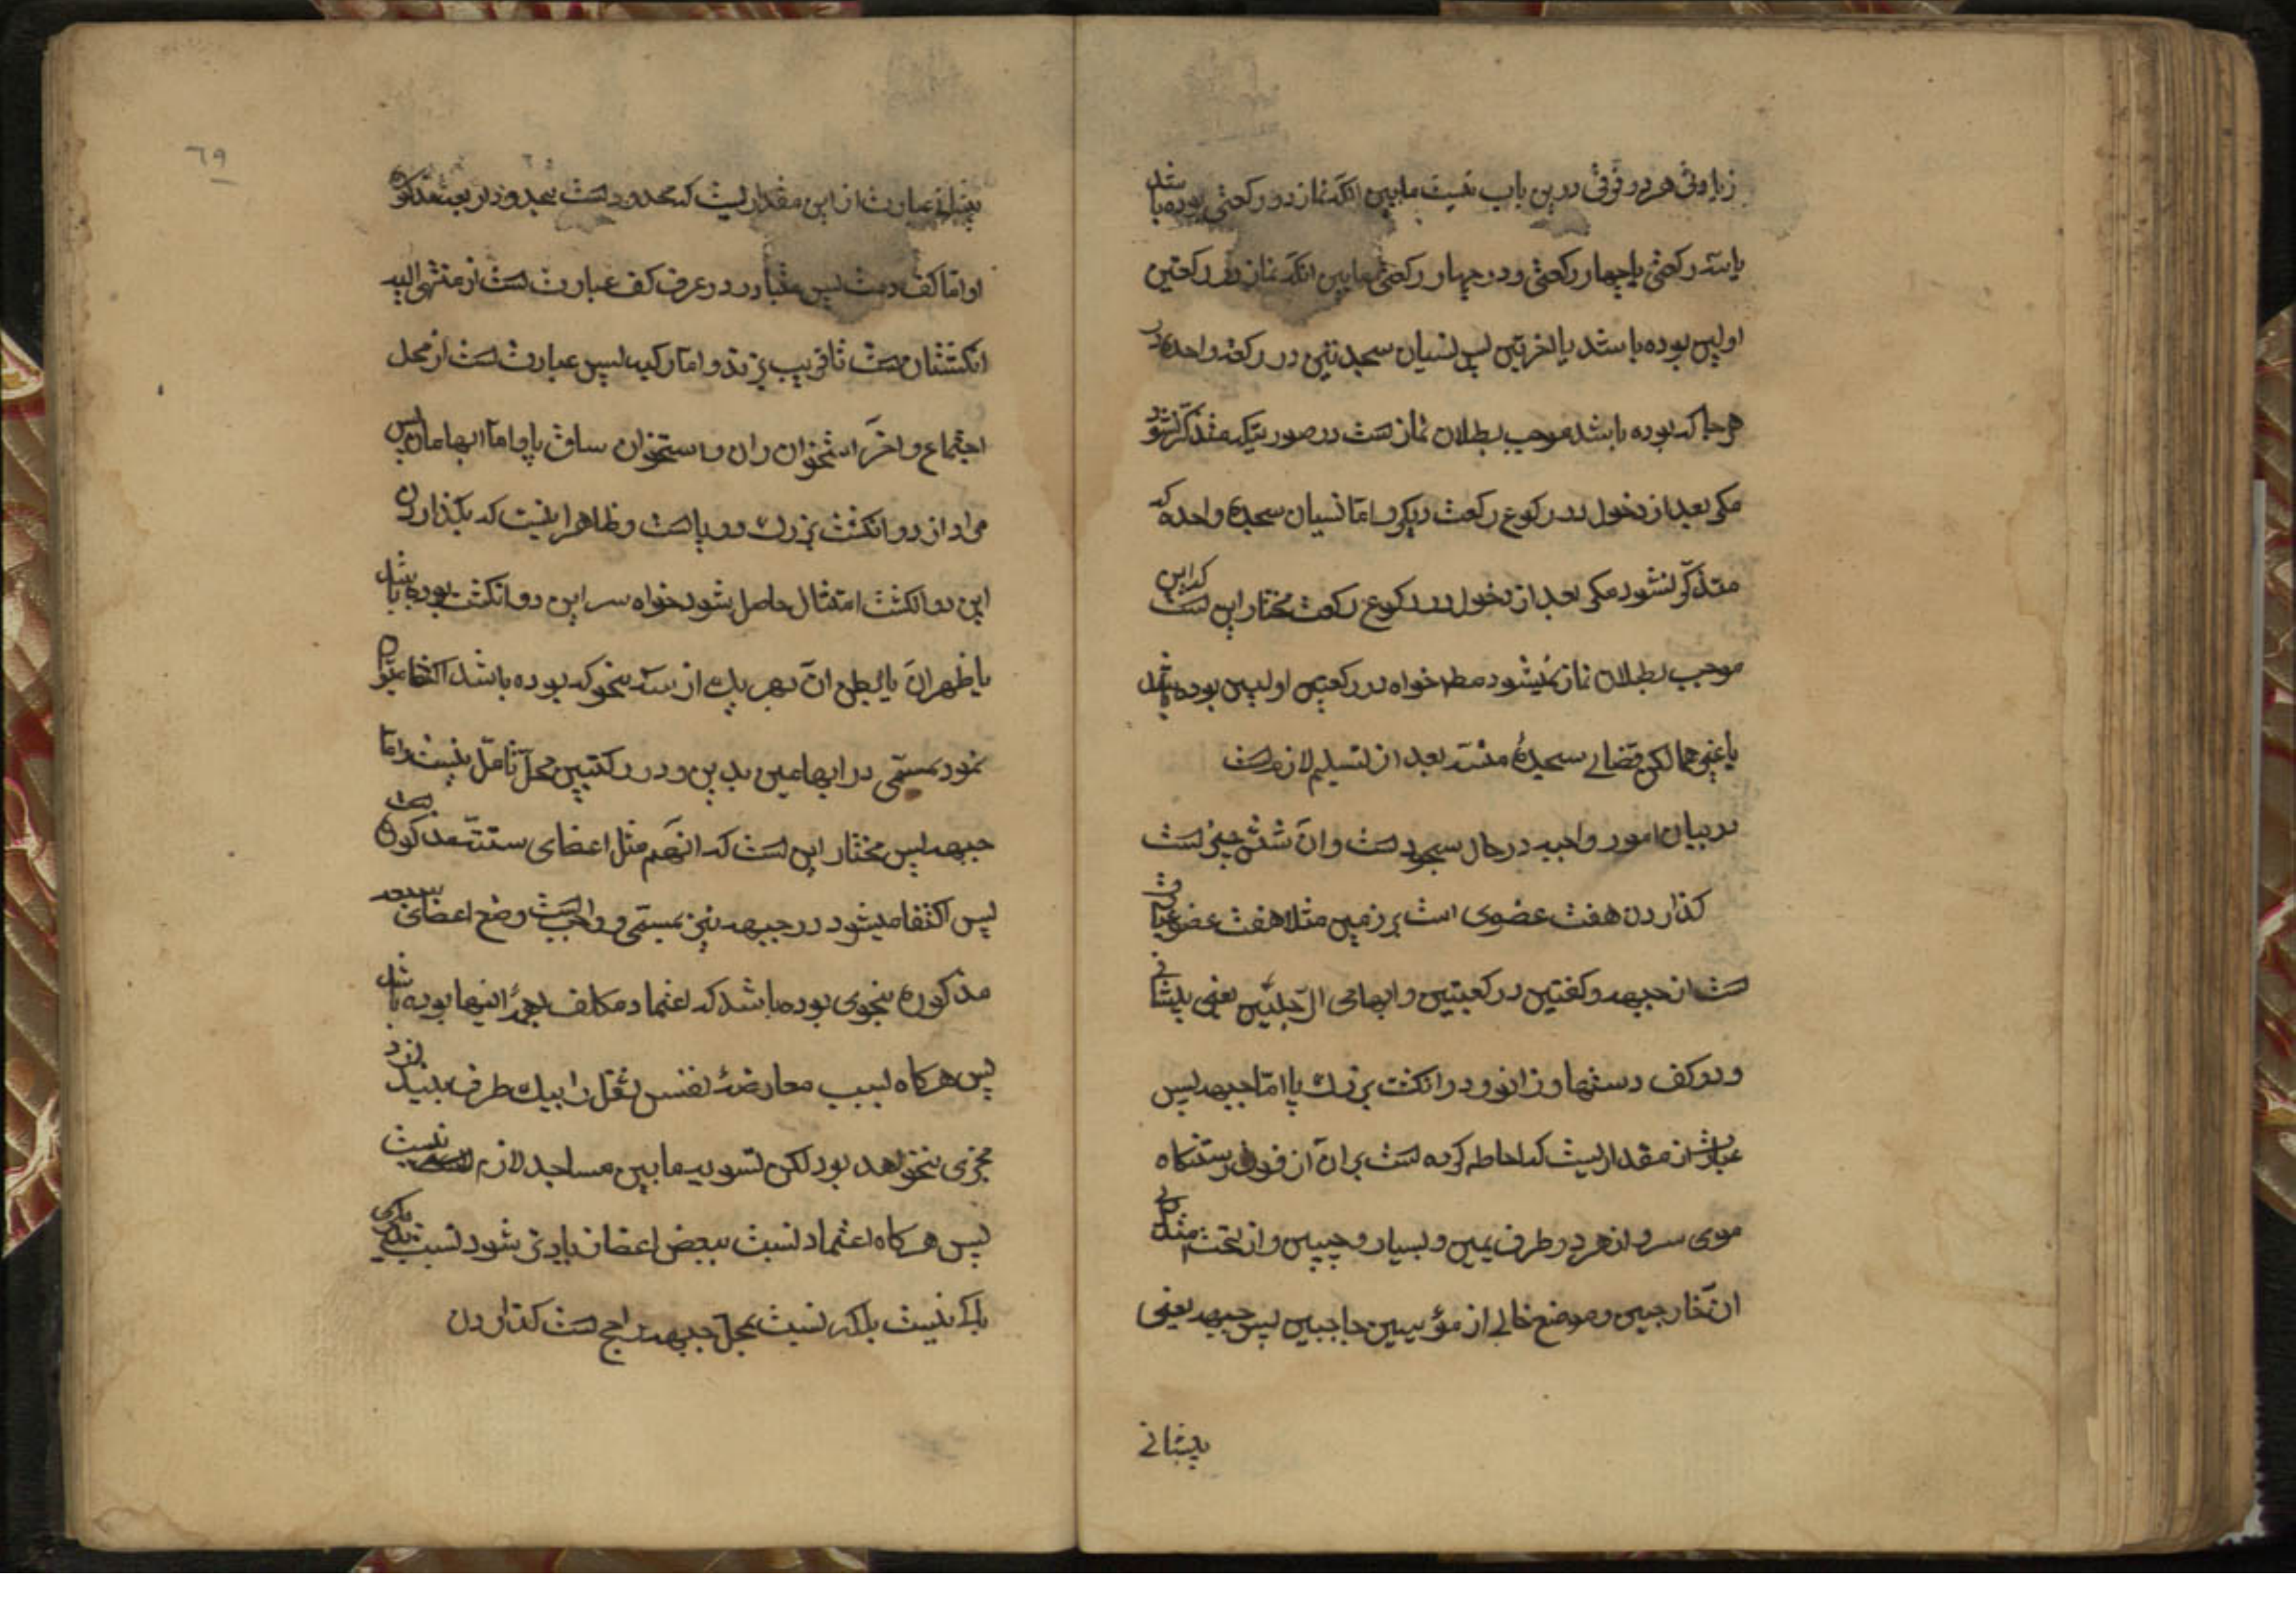 زیادتی هر دو فرقی درین باب نیست مابین آنکه نماز دو رکعتی بوده باشد
یا سه رکعتی یا چهار رکعتی و در چهار رکعتی مابین آنکه نماز در رکعتین
اولیین بوده باشد یا اخرتین پس نسیان سجدتین در رکعة واحده در
هر جا که بوده باشد موجب بطلان نماز است در صورتیکه متذکر نشود
مکر بعد از دخول در رکوع رکعت دیکر و اما نسیان سجدهٔ واحده که
متذکر نشود مکر بعد از دخول در رکوع رکعت مختار این است که این
موجب بطلان نماز نمیشود مطلقا خواه در رکعتین اولیین بوده باشد
یا غیر هما لکن قضای سجدهٔ منسیه بعد از تسلیم لازم است
در بیان امور واجبه در حال سجود است و آن شش چیز است
کذاردن هفت عضوی است بر زمین مثلا هفت عضو عبارت
است از جبهه و کفین و رکبتین و ابهامی الرجلین یعنی پیشانی
و دو کف دستها و زانو و دو انکشت بزرک پا اما جبهه پس
عبارت از مقداریست که احاطه کرده است بر آن از فوق رستنکاه
موی سر و از هر دو طرف یمین و یسار و جبین و از تحت
آن خارجین و موضع خالی از مؤ بین حاجبین پس جبهه یعنی
پیشانی
٦٩
پیشانی عبارت از این مقداریست که محدود است بحدود اربعه مذکوره
او اما کف دست پس متبادر در عرف کف عبارت است از منتهی الیه
انکشتان است تا قریب بزند و اما رکبه پس عبارت است از محل
اجتماع و اخر استخوان ران و استخوان ساق پا و اما ابهامان پس
مراد از دو انکشت بزرک دو پاست و ظاهر اینست که بکذاردن
این دو انکشت امتثال حاصل شود خواه سر این دو انکشت بوده باشد
یا ظهر آن یا بطن آن بهر یک از سه نحو که بوده باشد اکتفا میتوان
نمود بمسمی در ابهامین و یدین و در رکبتین محل تامل نیست و اما
جبهه پس مختار این است که آنهم مثل اعضای ستهٔ مذکوره است
پس اکتفا میشود در جبهه نیز بمسمی و واجب است وضع اعضای سبعه
مذکوره بنحوی بوده باشد که اعتماد مکلف بهمهٔ اینها بوده باشد
پس هرکاه بسبب معارضهٔ نفس ثقل را بیک طرف بیندازد
مجزی نخواهد بود لکن تسویه مابین مساجد لازم نیست
پس هرکاه اعتماد نسبت ببعض اعضا زیادتی شود نسبت بدیکری
باک نیست بلکه نسبت بمحل جبهه راجح است کذاردن